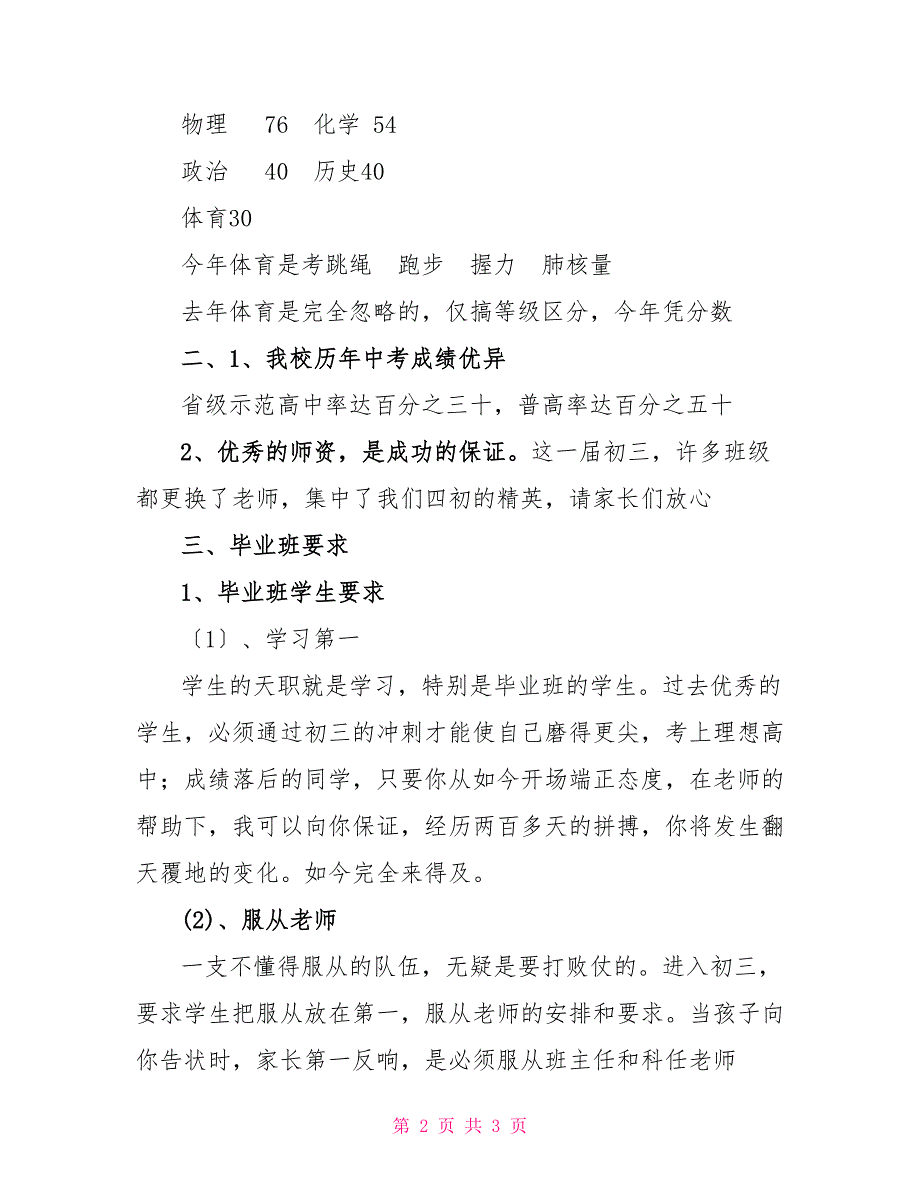 物理 76 化学 54
政治 40 历史40
体育30
今年体育是考跳绳 跑步 握力 肺核量
去年体育是完全忽略的，仅搞等级区分，今年凭分数
二、1、我校历年中考成绩优异
省级示范高中率达百分之三十，普高率达百分之五十
2、优秀的师资，是成功的保证。这一届初三，许多班级
都更换了老师，集中了我们四初的精英，请家长们放心
三、毕业班要求
1、毕业班学生要求
〔1〕、学习第一
学生的天职就是学习，特别是毕业班的学生。过去优秀的
学生，必须通过初三的冲刺才能使自己磨得更尖，考上理想高
中；成绩落后的同学，只要你从如今开场端正态度，在老师的
帮助下，我可以向你保证，经历两百多天的拼搏，你将发生翻
天覆地的变化。如今完全来得及。
(2)、服从老师
一支不懂得服从的队伍，无疑是要打败仗的。进入初三，
要求学生把服从放在第一，服从老师的安排和要求。当孩子向
你告状时，家长第一反响，是必须服从班主任和科任老师
第 2 页 共 3 页